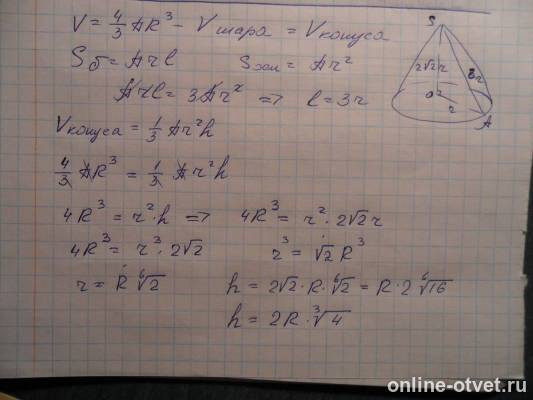 V = 4/3 πR³ - V шара = V конуса
S б = πrl   S осн = πr²
πrl = 3πr² => l = 3r
V конуса = 1/3 πr²h
4/3 πR³ = 1/3 πr²h
4R³ = r²·h => 4R³ = r²·2√2r
4R³ = r³·2√2   r³ = √2 R³
r = R ⁶√2   h = 2√2·R·⁶√2 = R·2 ⁶√16
h = 2R·³√4
S
2√2r
3r
O
r
A
online-otvet.ru